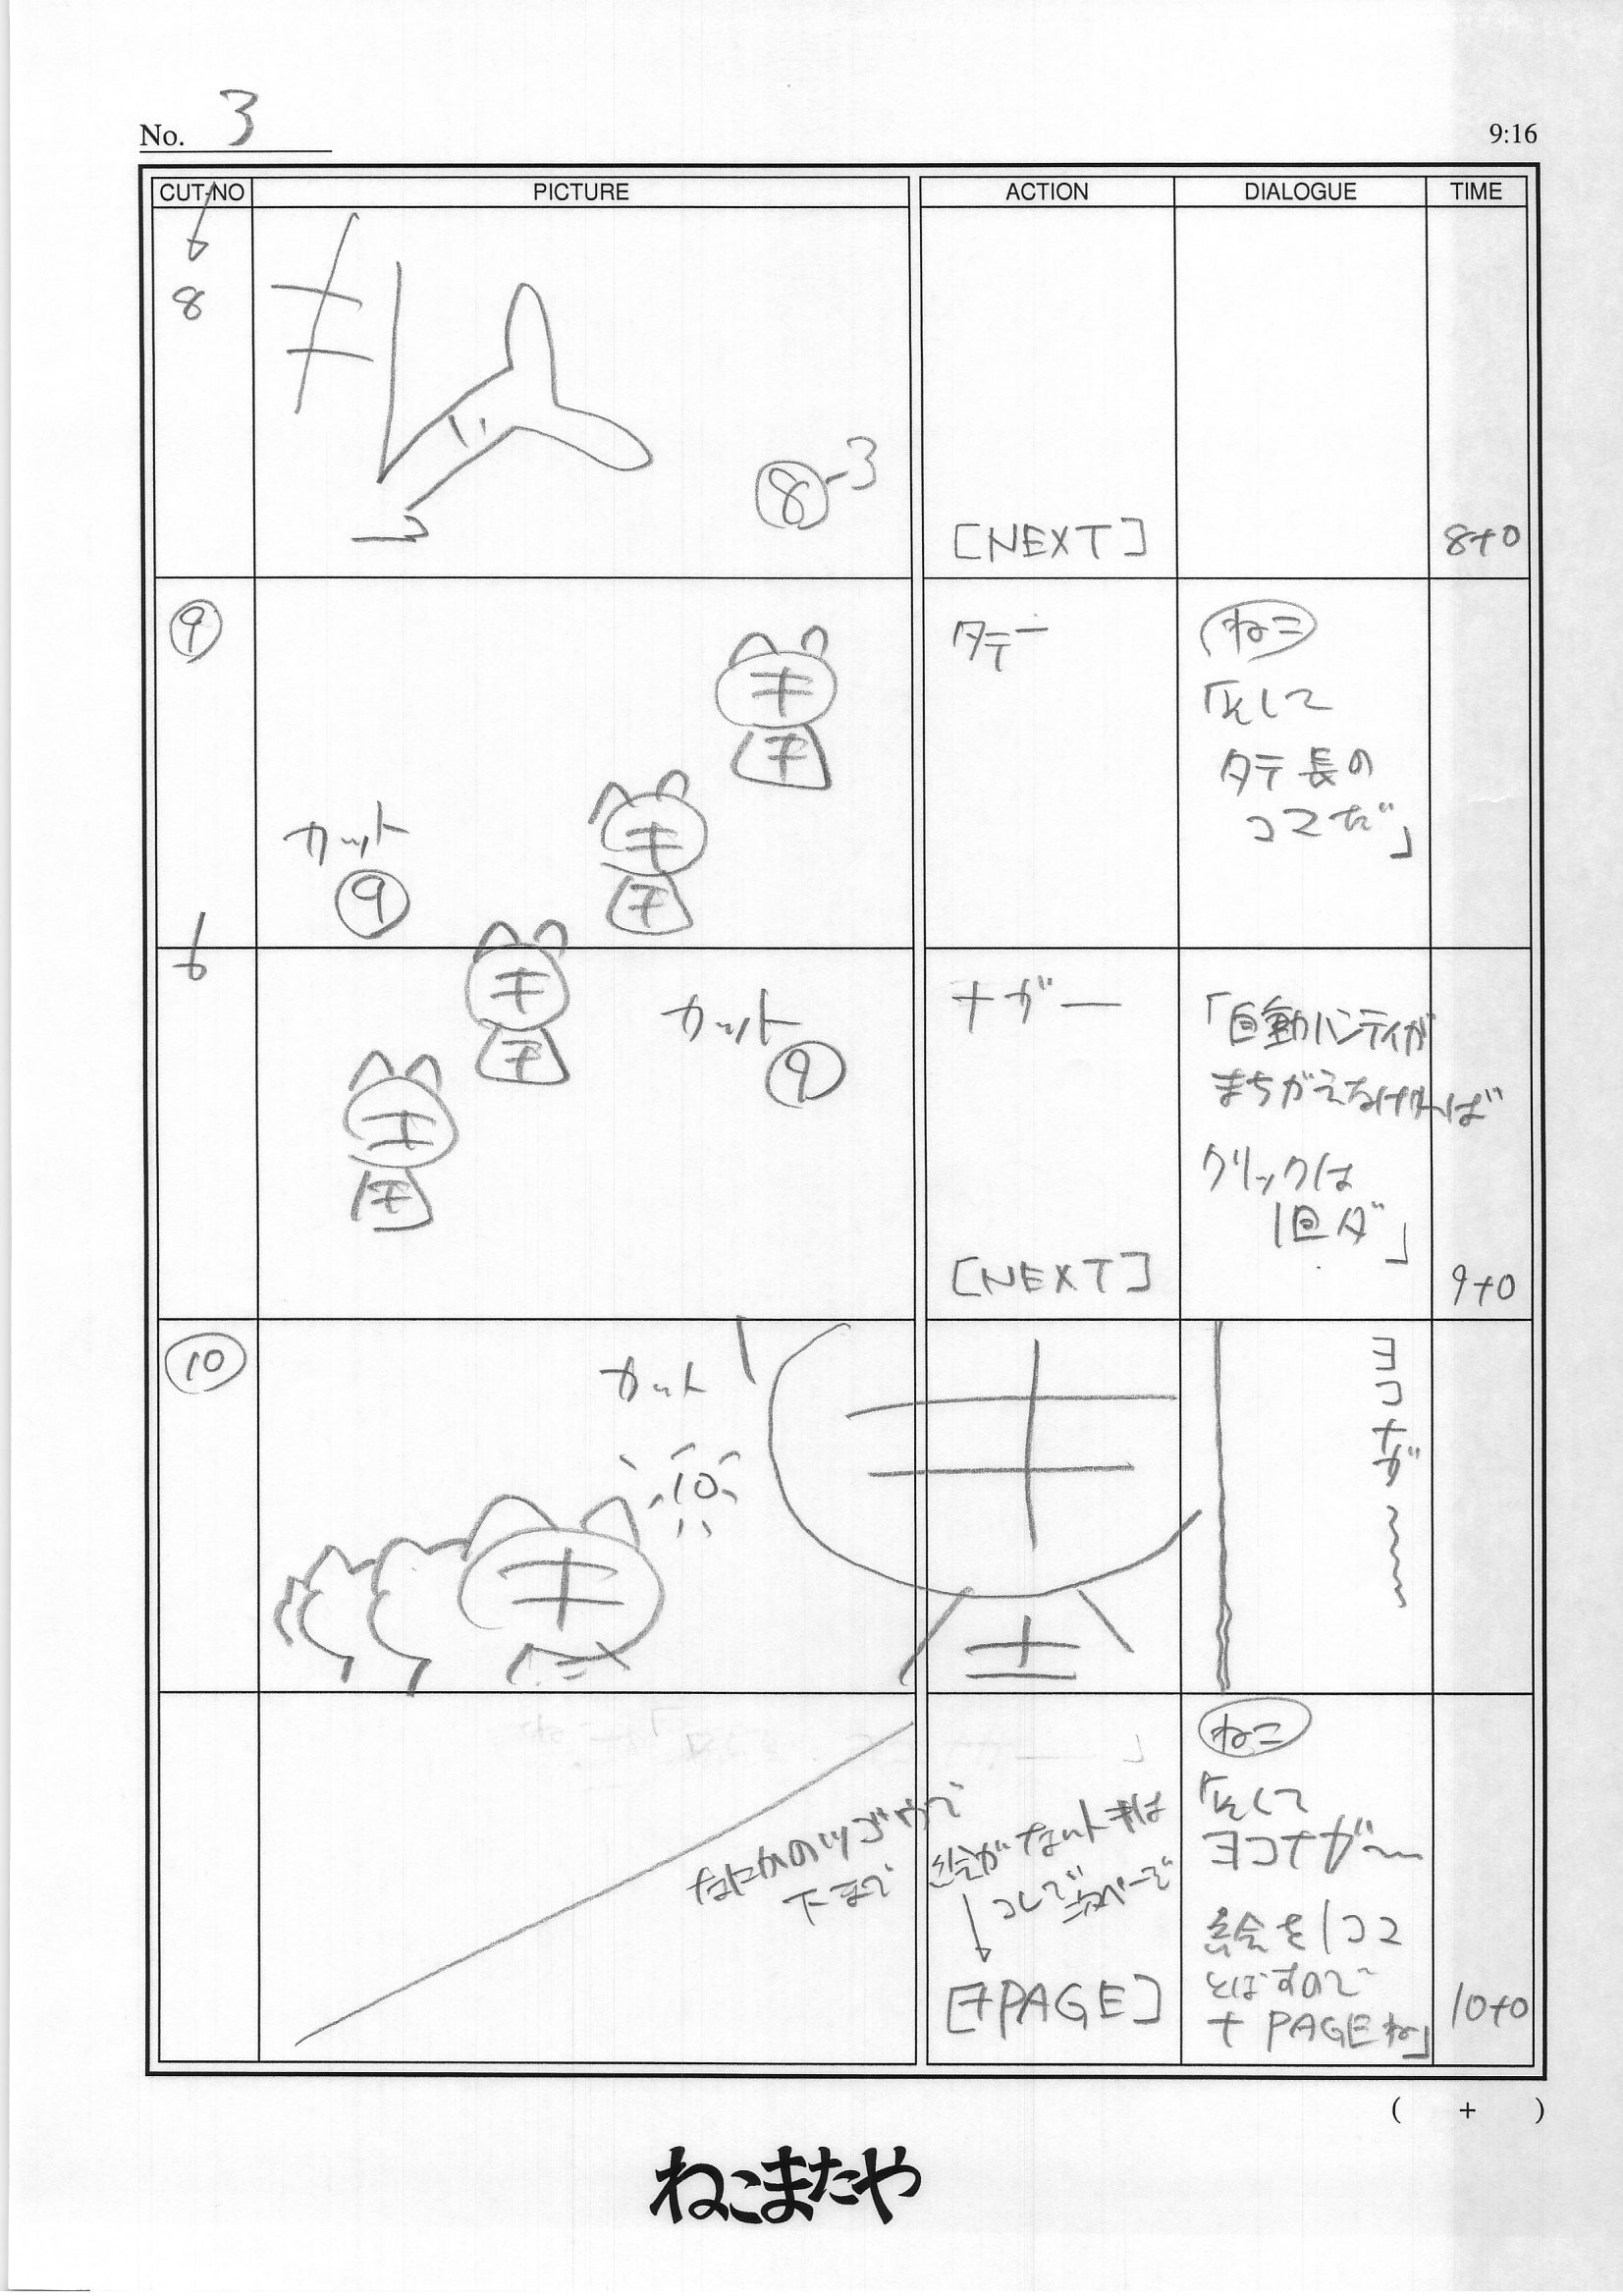 No. 3
9:16
CUT-NO
PICTURE
ACTION
DIALOGUE
TIME
8
キ
⑧-3
[NEXT]
8+0
⑨
キ
キ
キ
キ
カット
⑨
タテー
ねこ
「そして
タテ長の
コマだ」
キ
キ
キ
キ
カット
⑨
ナガー
[NEXT]
「自動ハンティが
まちがえなければ
クリックは
1回ダ」
9+0
⑩
カット
10
キ
キ
キ
ヨコナガ〜
なにかのツゴウで
下まで
絵がないトキは
コレで次ページ
[+PAGE]
ねこ
「そして
ヨコナガ〜
絵を1コマ
とばすので
+PAGEね」
10+0
( + )
ねこまたや